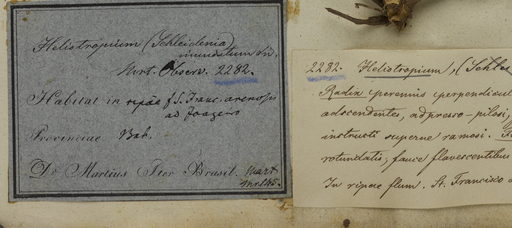 Heliotropium (Schleidenia)
inundatum Sw.
Mrt. Observ. 2282.
Habitat in ripâ f. S. Franc. arenosis
ad Joazeiro
Provinciae Bah.
Dr Martius Iter Brasil. Mart
2282. Heliotropium, (Schlei
Radix perennis perpendicul
adscendentes, adpresso-pilosi,
instructi superne ramosi.
rotundatis; fauce flavescentibus
In ripae flum. St. Francisco